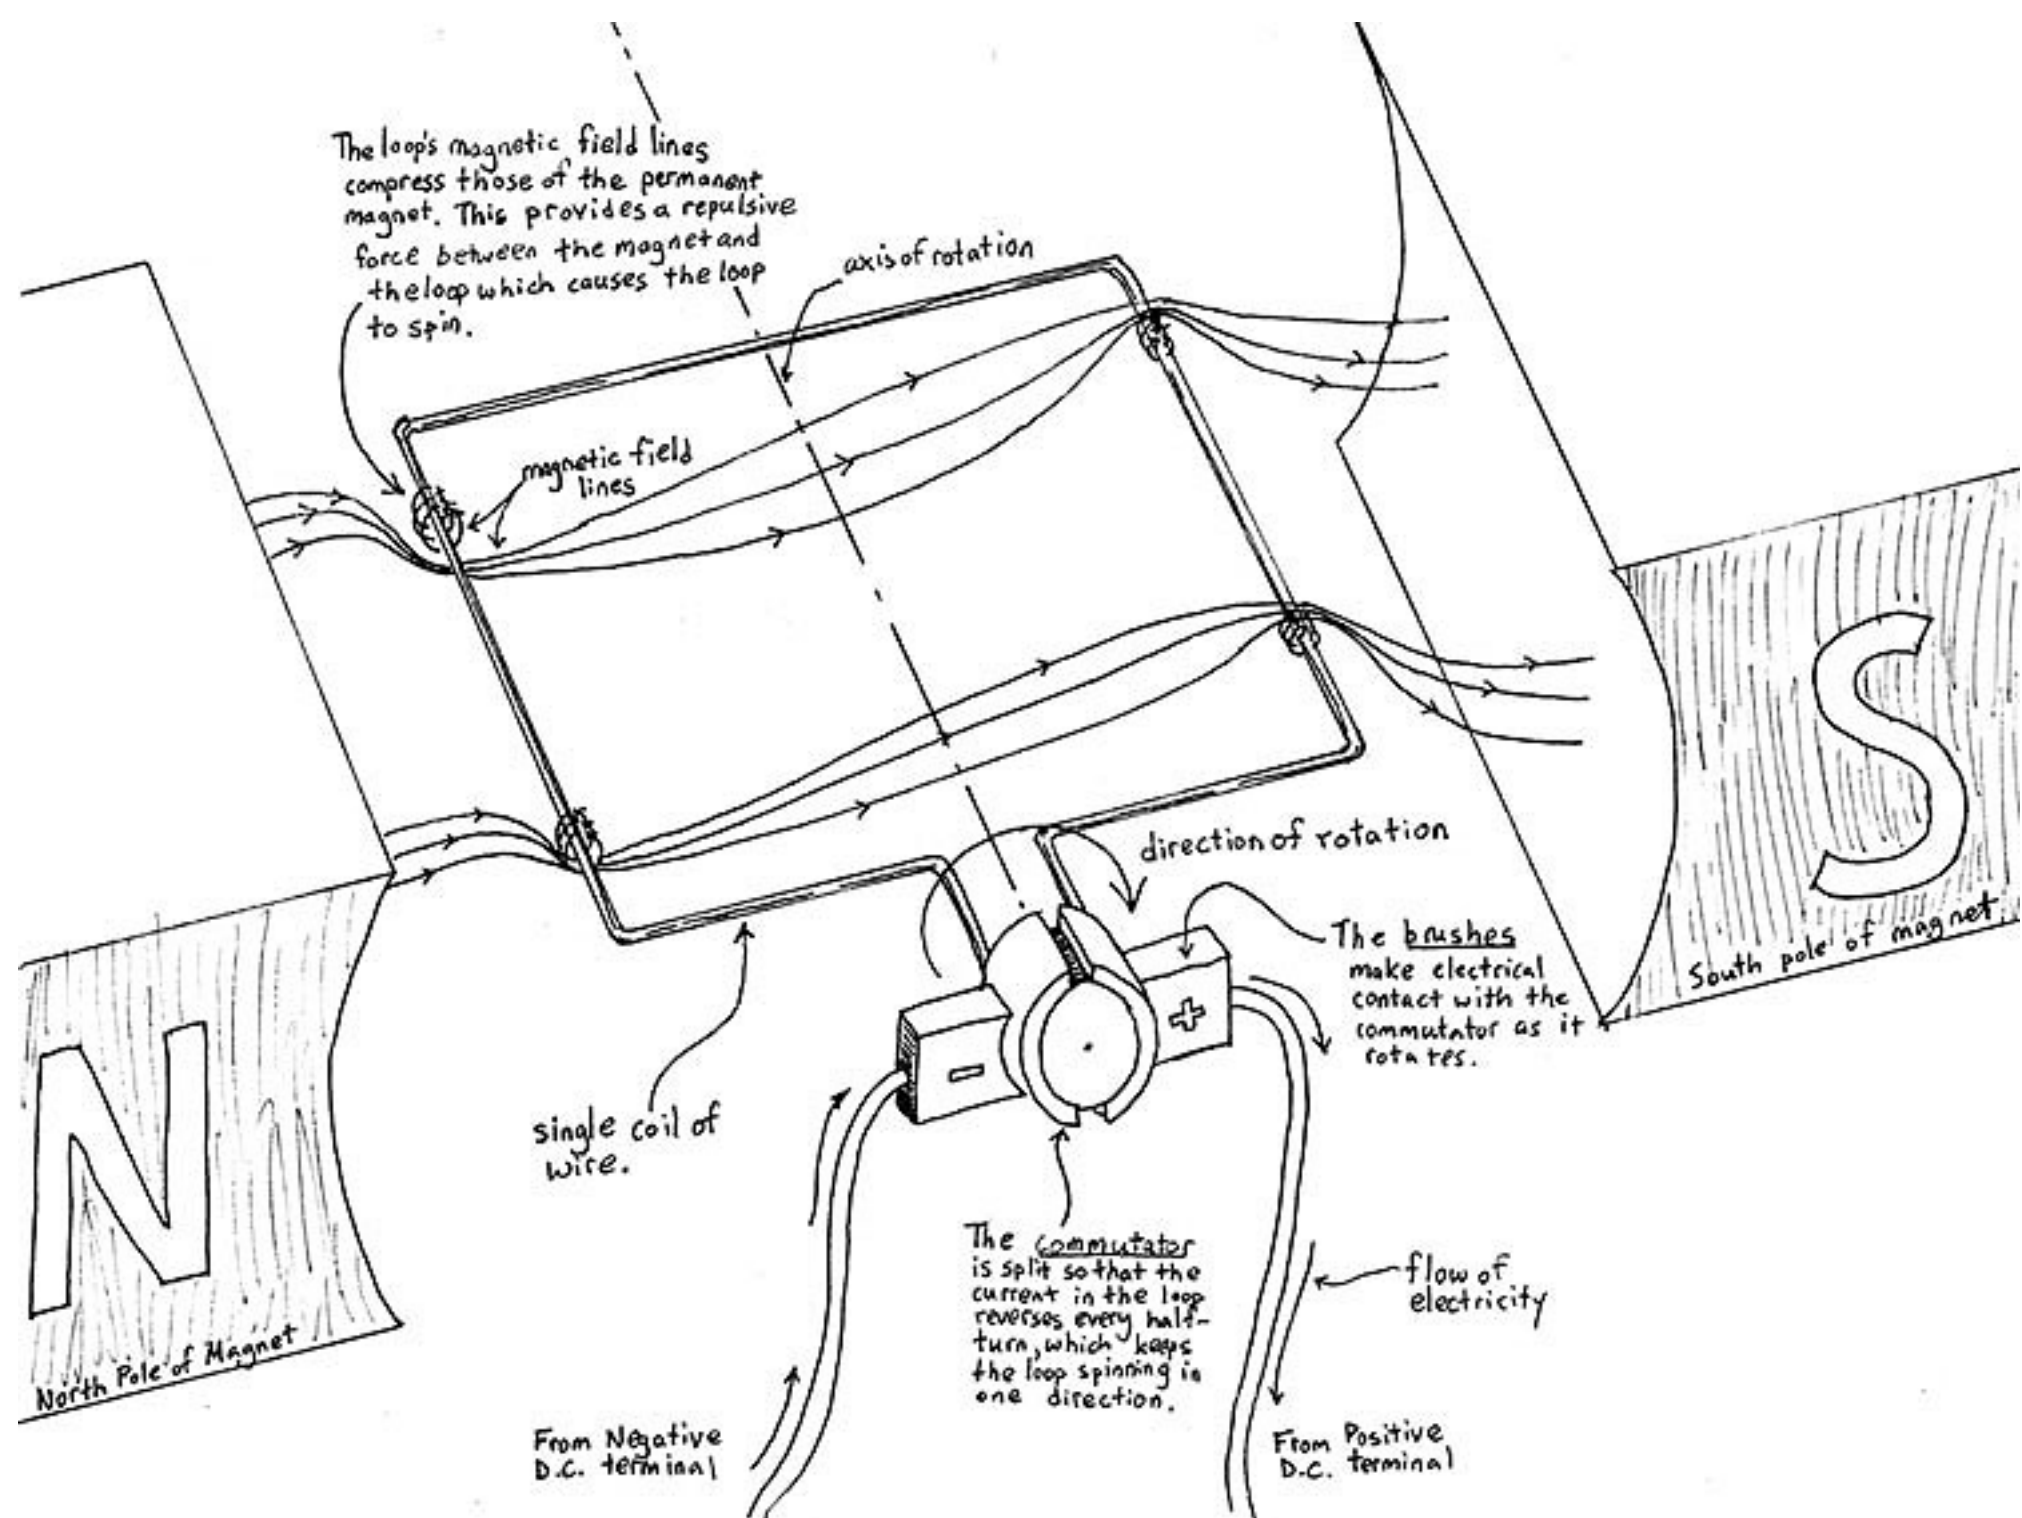 The loop's magnetic field lines
compress those of the permanent
magnet. This provides a repulsive
force between the magnet and
the loop which causes the loop
to spin.
axis of rotation
magnetic field
lines
direction of rotation
The brushes
make electrical
contact with the
commutator as it
rotates.
S
South pole of magnet
N
North Pole of Magnet
+
-
single coil of
wire.
The commutator
is split so that the
current in the loop
reverses every half-
turn, which keeps
the loop spinning in
one direction.
flow of
electricity
From Negative
D.C. terminal
From Positive
D.C. terminal